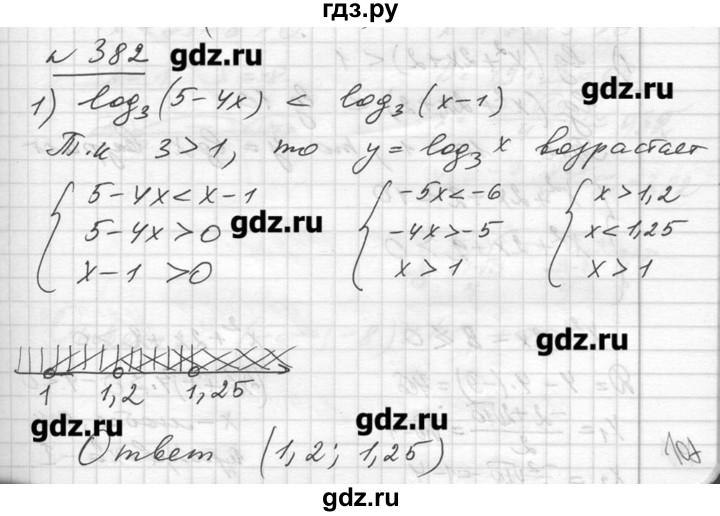 гдз.ру
№ 382 gdz.ru
1) log₃(5-4x) < log₃(x-1) gdz.ru
Т.к 3>1, то y=log₃x возрастает
{ 5-4x<x-1 { -5x<-6 { x>1,2
5-4x>0 gdz.ru -4x>-5 x<1,25
x-1 >0 x>1 x>1
gdz.ru
1 1,2 1,25
gdz.ru gdz.ru
Ответ (1,2; 1,25)
gdz.ru